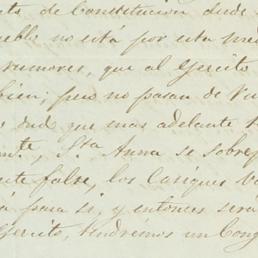 de Constitucion dude
no está por esta
rumores, que al Ejercito
bien; pero no pasan de
dud que mas adelante
Sta Anna se sobrep
falte, los Caciques
para si, y entonces será
Ejercito, tendrémos un Cong